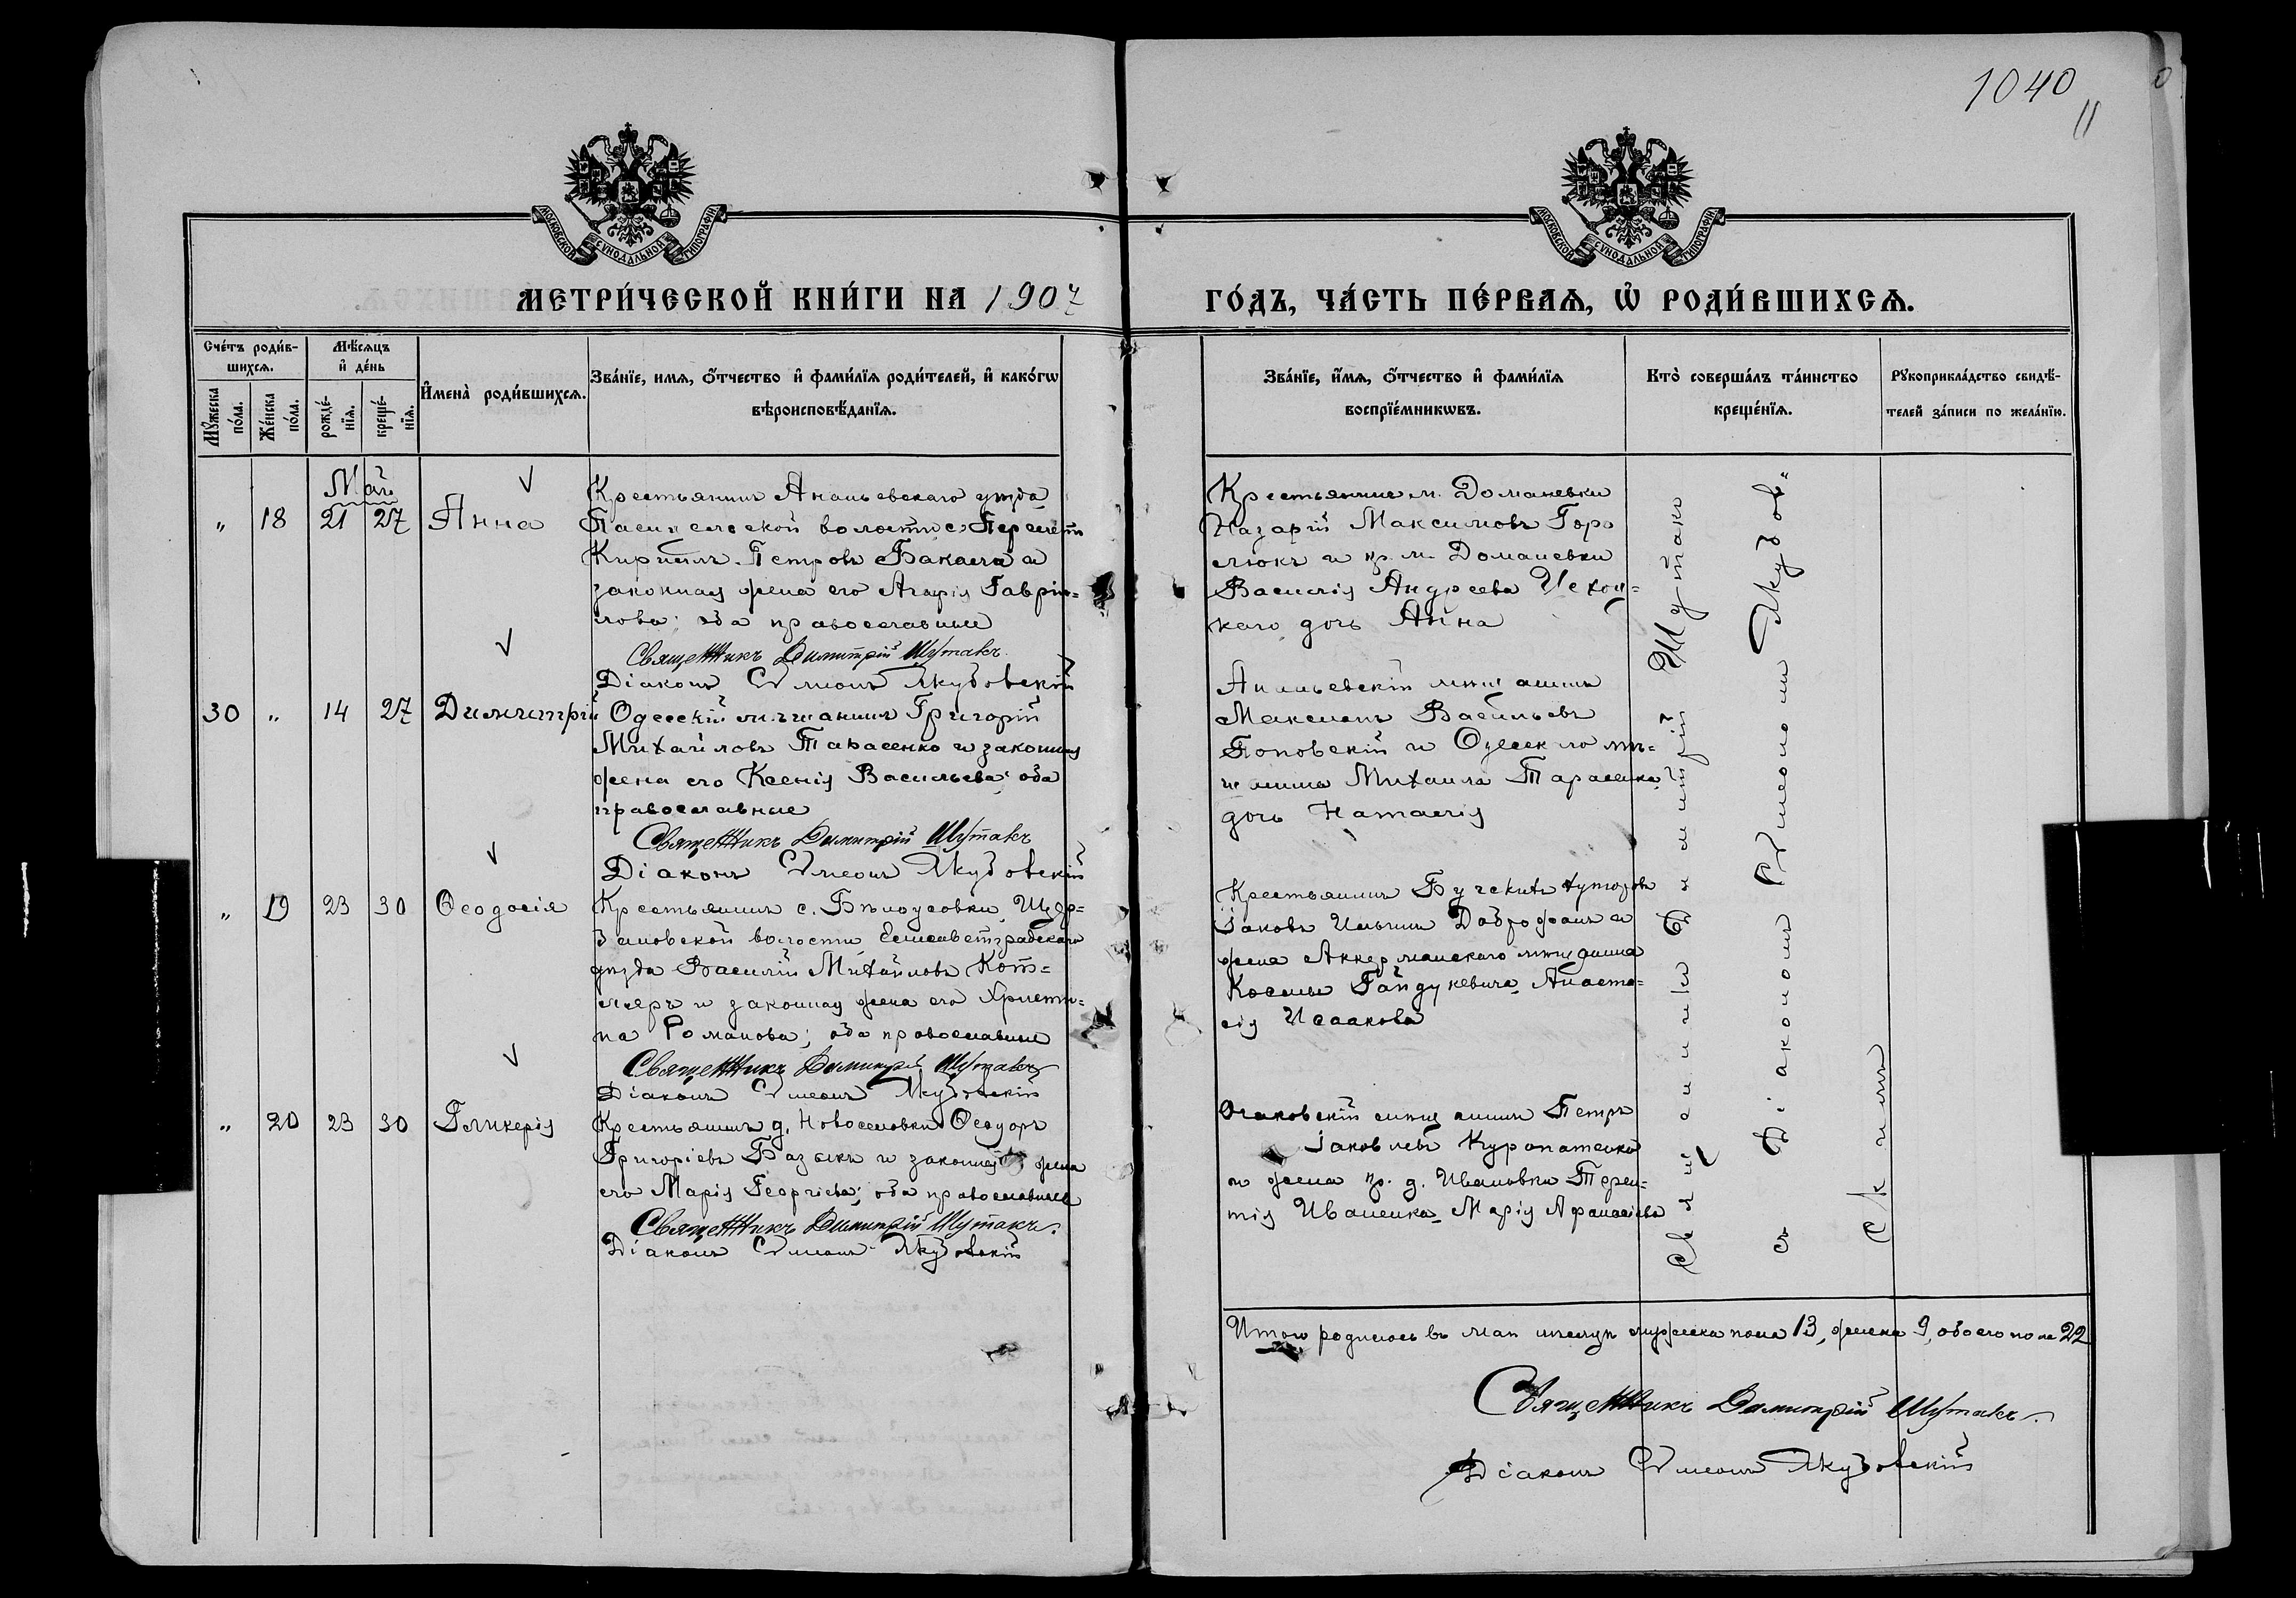 1040
11
МОСКОВСКОЙ СѴНОДАЛЬНОЙ ТИПОГРАФІИ
МОСКОВСКОЙ СѴНОДАЛЬНОЙ ТИПОГРАФІИ
МЕТРИ́ЧЕСКОЙ КНИ́ГИ НА 1907
ГО́ДЪ, ЧА́СТЬ ПЕ́РВАѦ, Ѡ РОДИ́ВШИХСѦ.
Сче́тъ роди́в-
шихсѧ.
Мꙋ́жеска по́ла.
Же́нска по́ла.
Мѣ́сѧцъ
и де́нь
рожде́-
нїѧ.
креще́-
нїѧ.
Имена̀ роди́вшихсѧ.
Зва́нїе, имѧ, ѻ́тчество и фами́лїѧ роди́телей, и како́гѡ
вѣроисповѣ́данїѧ.
Зва́нїе, и́мѧ, ѻ́тчество и фами́лїѧ
воспрїе́мникѡвъ.
Кто̀ соверша́лъ та́инство
креще́нїѧ.
Рꙋкоприкла́дство свидѣ́-
телей за́писи по жела́нїю.
Май
" 18 21 27 Анна
Крестьянинъ Ананьевскаго уѣзда
волости с.
Кириллъ Петровъ Бакала и
законная жена его Агафія Гаврiи-
лова; оба православные
Священникъ Димитрій Шутакъ
Діаконъ Сѵмеонъ Якубовскій
Крестьянинъ м. Доманевки
Назарій Максимовъ Горо
люкъ и кр. м. Доманевки
Василія Андреева Чехов-
каго дочь Анна
30 " 14 27 Димитрій
Одесскій мѣщанинъ Григорій
Михайловъ Тарасенко и законная
жена его Ксенія Васильева; оба
православные
Священникъ Димитрій Шутакъ
Діаконъ Сѵмеонъ Якубовскій
Ананьевскій мѣщанинъ
Васильевъ
Поповскій и Одесскаго мѣ-
щанина Михаила Тарасенко
дочь Наталія
" 19 23 30 Ѳеодосія
Крестьянинъ с. Бѣлоусовки, Щер-
бановской волости Елисаветградскаго
уѣзда Василій Михайловъ Кот-
ляръ и законная жена его Христи-
на Романова; оба православные
Священникъ Димитрій Шутакъ
Діаконъ Сѵмеонъ Якубовскій
Крестьянинъ Бугскихъ хуторовъ
Іаковъ Ильинъ Доброжанъ и
жена Аккерманскаго мѣщанина
Косьмы Гайдукевича Анаста-
сія Исаакова
" 20 23 30 Гликерія
Крестьянинъ д. Новоселовки Ѳеодоръ
Григоріевъ Базыкъ и законная жена
его Марія Георгіева; оба православные
Священникъ Димитрій Шутакъ.
Діаконъ Сѵмеонъ Якубовскій
Очаковскій мѣщанинъ Петръ
Іаковлевъ Куропатенко
и жена кр. д. Ивановки Терен-
тія Иваненка Марія Афанасіева
Священникъ Димитрій Шутакъ
съ Діакономъ Сѵмеономъ Якубов-
скимъ
Итого родилось въ маѣ мѣсяцѣ мужеска пола 13, женска 9, обоего пола 22
Священникъ Димитрій Шутакъ.
Діаконъ Сѵмеонъ Якубовскій